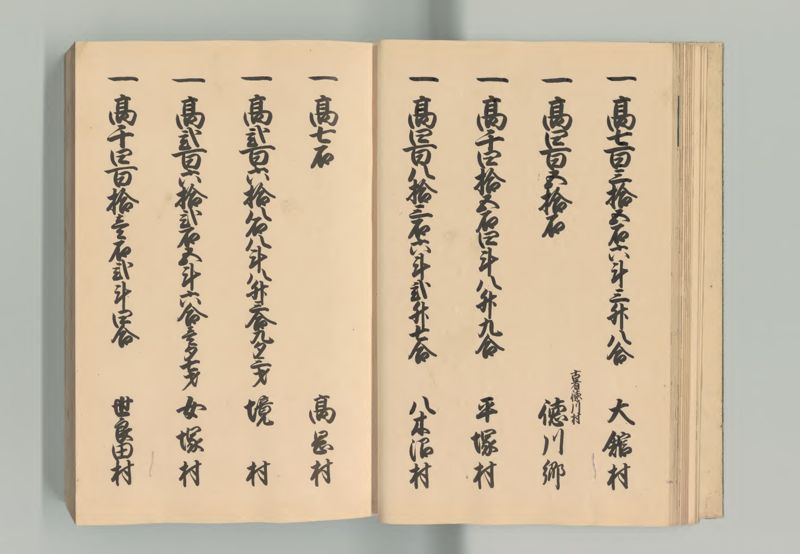 一高七百三拾五石六斗三升八合 大舘村
一高四百五拾石 徳川郷
古者徳川村
一高千四拾五石四斗八升九合 平塚村
一高四百八拾三石六斗弐升七合 八木沼村
一高七石 高岡村
一高弐百六拾八石八斗八升三合九夕三才 境村
一高弐百六拾弐石五斗六合壱夕七才 女塚村
一高千四百拾壱石弐斗四合 世良田村